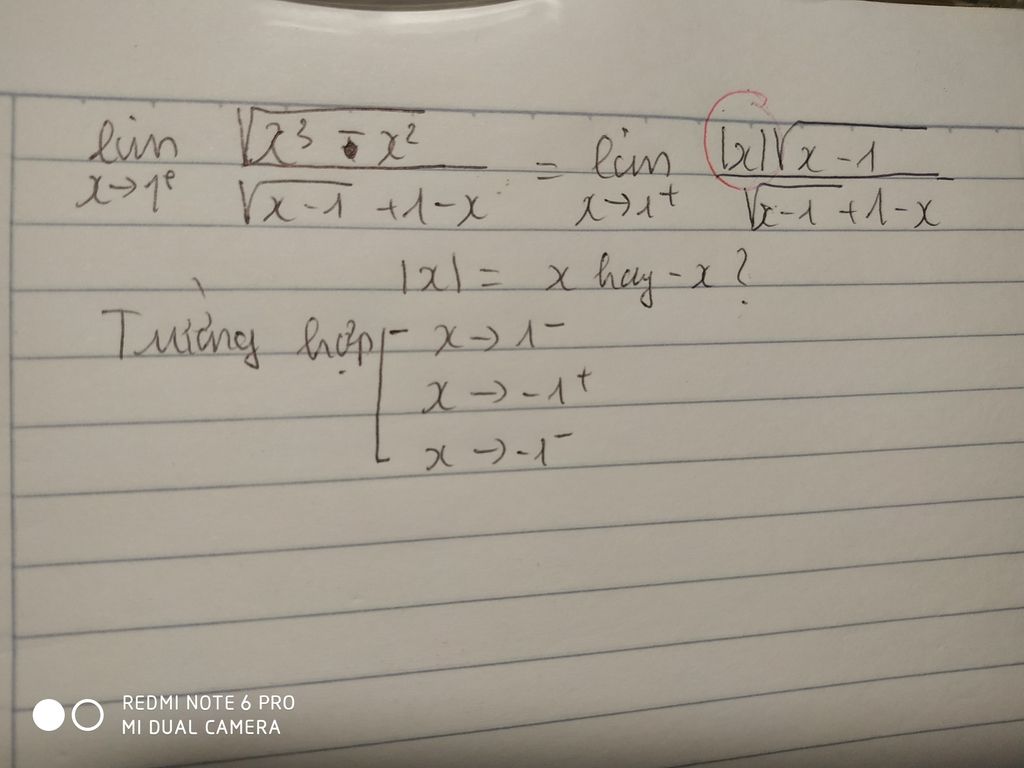 lim x→1⁺ √(x³ - x²) / (√(x-1) + 1 - x) = lim x→1⁺ |x|√(x-1) / (√(x-1) + 1 - x)
|x| = x hay -x ?
Trường hợp x → 1⁻
x → -1⁺
x → -1⁻
REDMI NOTE 6 PRO
MI DUAL CAMERA